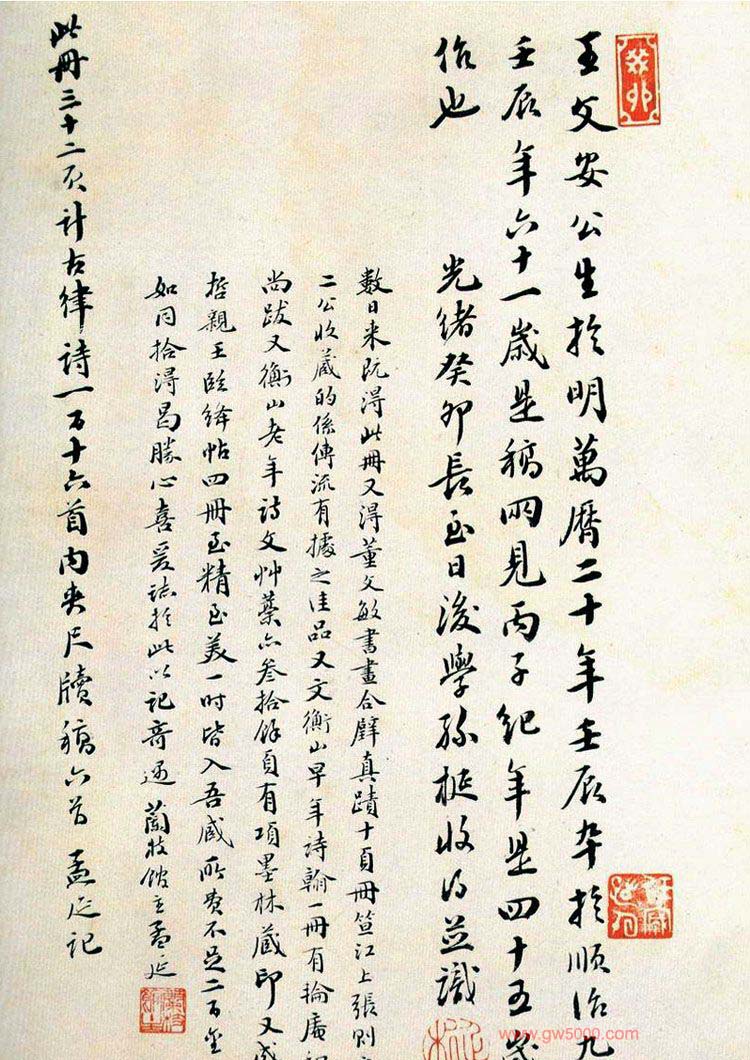 癸卯
王文安公生於明萬曆二十年壬辰卒於順治九
壬辰年六十一歲是稿兩見丙子紀年是四十五歲
作也
光緒癸卯長至日後學孫梃收得並識
數日来既得此冊又得董文敏書畫合璧真蹟十頁冊笪江上張則
二公收藏的係傳流有據之佳品又文衡山早年詩翰一冊有掄
尚跋又衡山老年詩文艸藁六叁拾餘頁有項墨林藏印又成
哲親王臨絳帖四冊至精至美一时皆入吾藏所費不足二百金
如同拾得曷勝心喜爰誌於此以記奇遇 蘭枝館主孟延
此冊三十二頁計古律詩一百十六首内夾尺牘稿六首 孟延記
www.gw5000.com